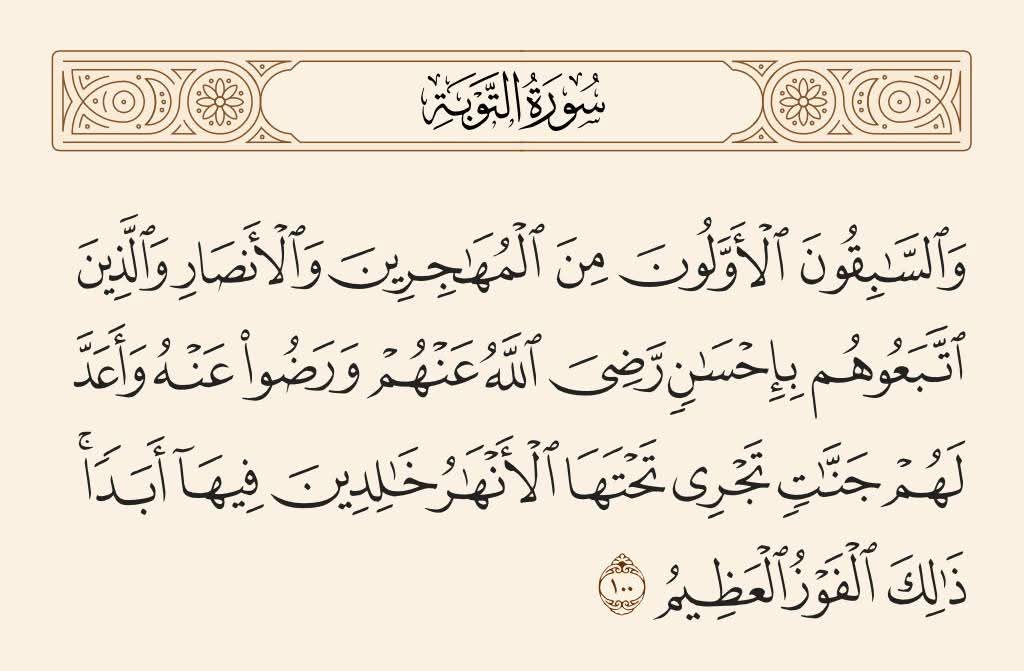 سُورَةُ التَّوْبَةِ
وَٱلسَّـٰبِقُونَ ٱلْأَوَّلُونَ مِنَ ٱلْمُهَـٰجِرِينَ وَٱلْأَنصَارِ وَٱلَّذِينَ
ٱتَّبَعُوهُم بِإِحْسَـٰنٍ رَّضِىَ ٱللَّهُ عَنْهُمْ وَرَضُوا۟ عَنْهُ وَأَعَدَّ
لَهُمْ جَنَّـٰتٍ تَجْرِى تَحْتَهَا ٱلْأَنْهَـٰرُ خَـٰلِدِينَ فِيهَآ أَبَدًا ۚ
ذَٰلِكَ ٱلْفَوْزُ ٱلْعَظِيمُ ١٠٠